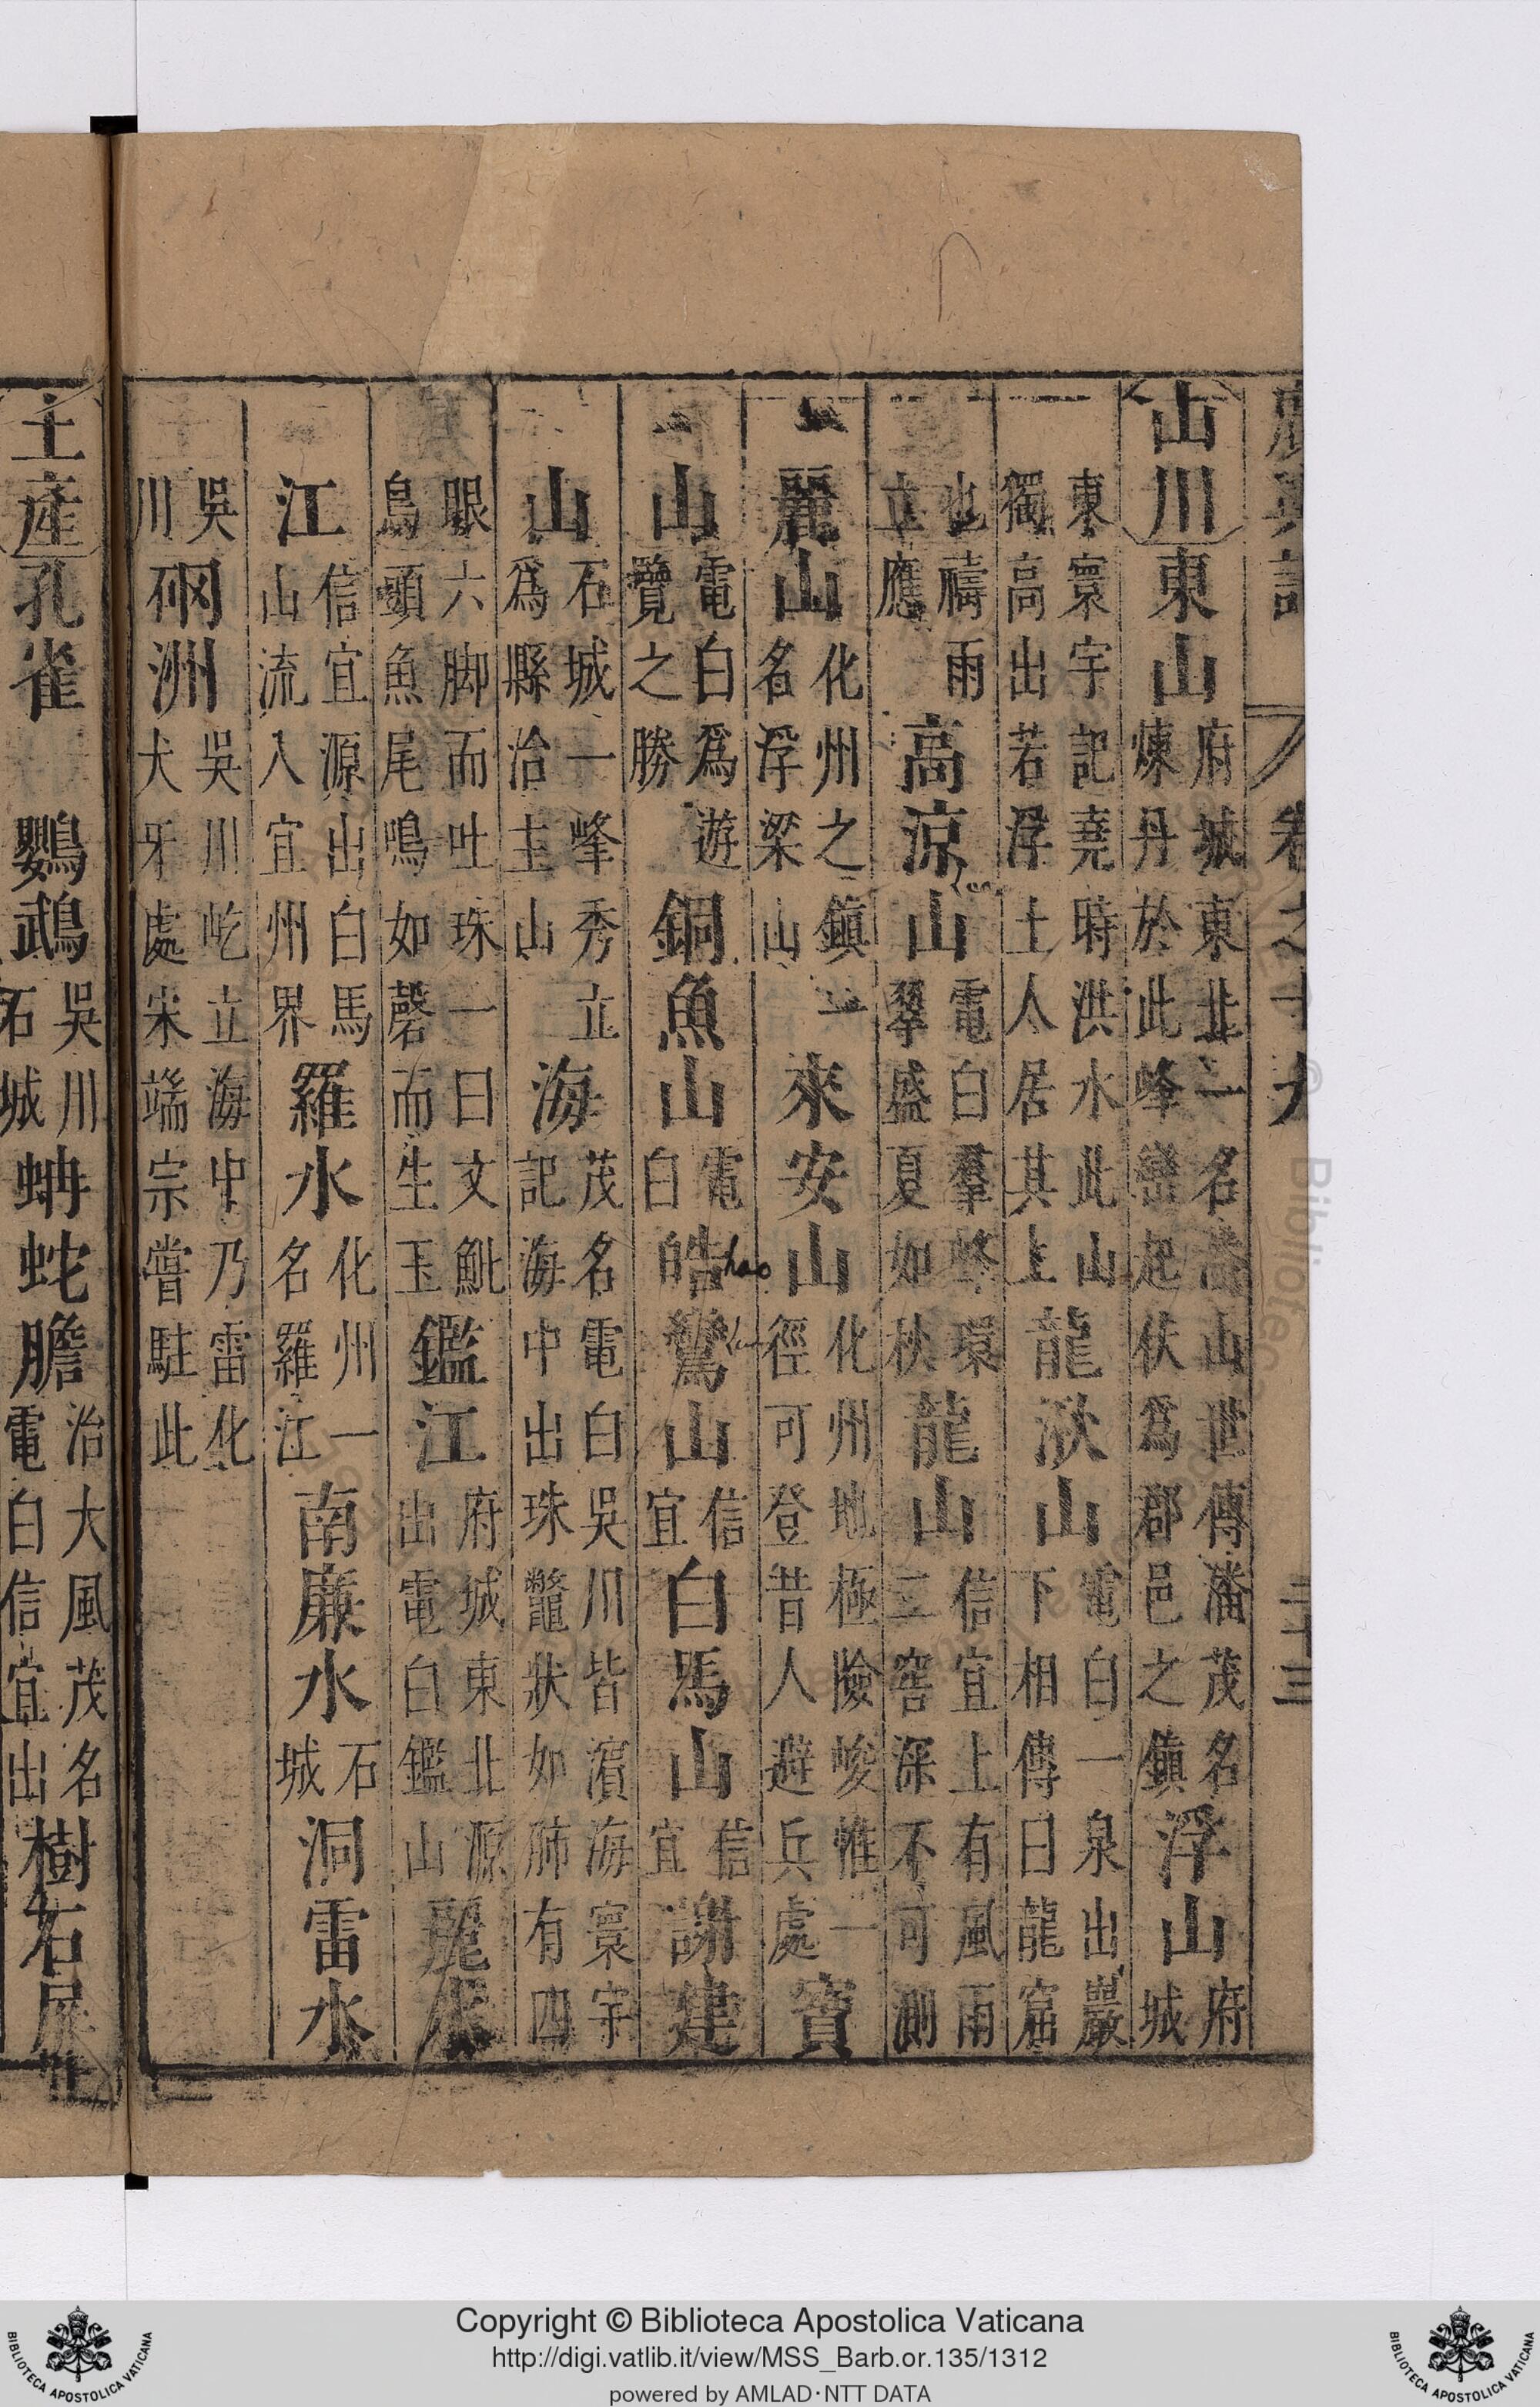 卷之十九 二十三
山川東山府城東北一名潘山世傳潘茂名煉丹於此峰巒起伏爲郡邑之鎮浮山府城
東寰宇記堯時洪水此山獨高出若浮土人居其上龍湫山電白一泉出巖下相傳曰龍窟
也禱雨立應高涼山電白羣峰環翠盛夏如秋龍山信宜上有風雨二窖深不可測
麗山化州之鎮一名浮梁山來安山化州地極險峻惟一徑可登昔人避兵處寶
山電白爲遊覽之勝銅魚山電白皓鷥山信宜白馬山信宜謝建
hao
山石城一峰秀立爲縣治主山海茂名電白吳川皆濵海寰宇記海中出珠鼈狀如肺有四
眼六脚而吐珠一曰文魮鳥頭魚尾鳴如磬而生玉鑑江府城東北源出電白鑑山麗水
江信宜源出白馬山流入宜州界羅水化州一名羅江南廉水石城洞雷水
吳川硇洲吳川屹立海中乃雷化犬牙處宋端宗嘗駐此
土産孔雀 鸚鵡吳川石城蚺蛇膽治大風茂名電白信宜出樹石屏
Copyright © Biblioteca Apostolica Vaticana
http://digi.vatlib.it/view/MSS_Barb.or.135/1312
powered by AMLAD·NTT DATA
BIBLIOTECA APOSTOLICA VATICANA
BIBLIOTECA APOSTOLICA VATICANA